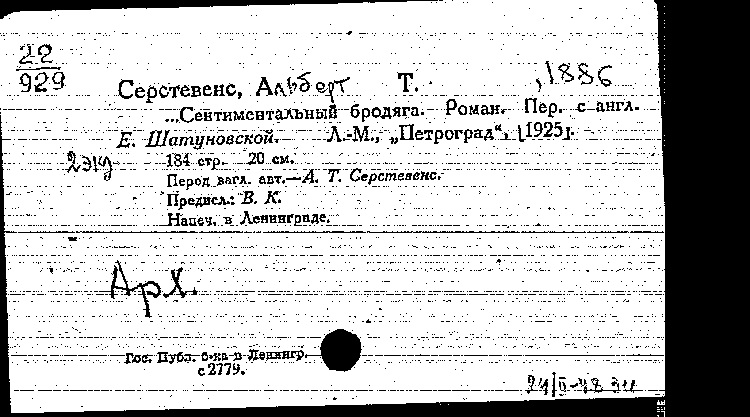 22
929
Серстевенс, Альберт Т. , 1886
...Сентиментальный бродяга. Роман. Пер. с англ.
Е. Шатуновской. Л.-М., „Петроград“, [1925].
2 экз
184 стр. 20 см.
Перед загл. авт.—А. Т. Серстевенс.
Предисл.: В. К.
Напеч. в Ленинграде.
Арх.
Гос. Публ. б-ка в Ленингр.
с 2779.